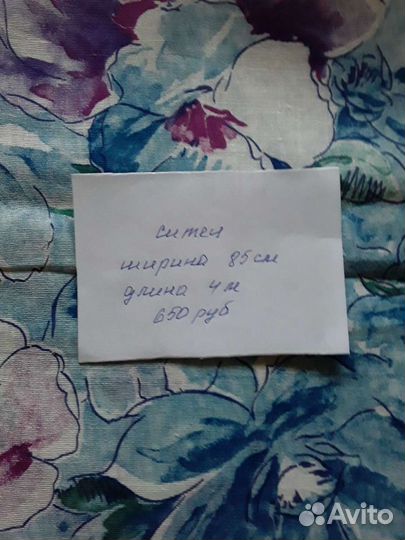 ситец
ширина 85 см
длина 4 м
650 руб
Avito